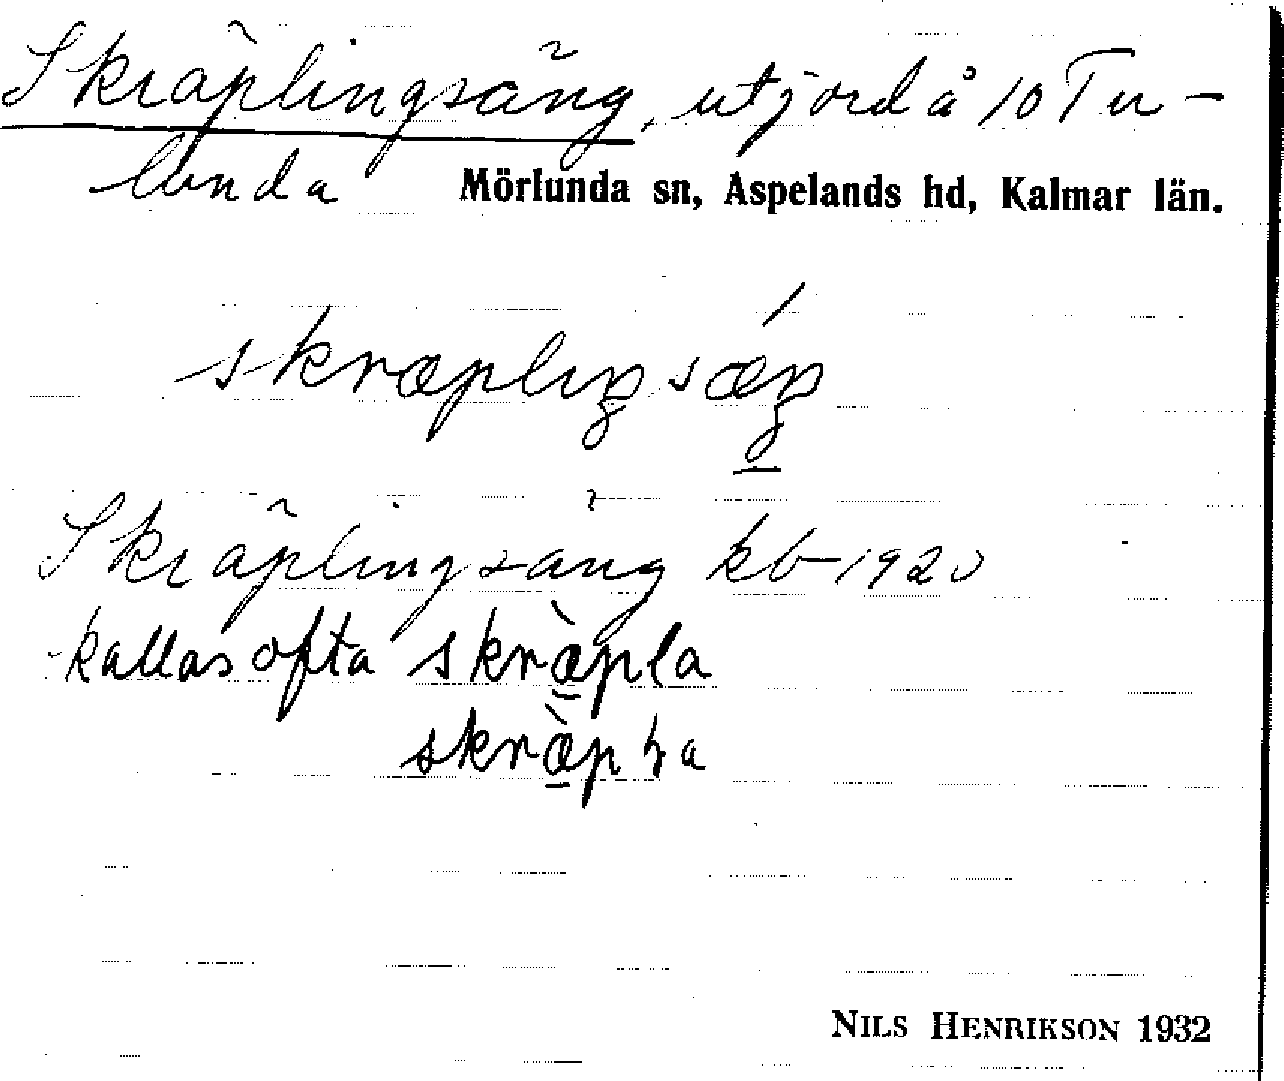 Skräplingsäng, utjord å 10 Tu-
lunda Mörlunda sn, Aspelands hd, Kalmar län.
skræpliŋsǽŋ
Skräplingsäng kb 1920
kallas ofta skræ̀pla
skræ̀pɽa
NILS HENRIKSON 1932